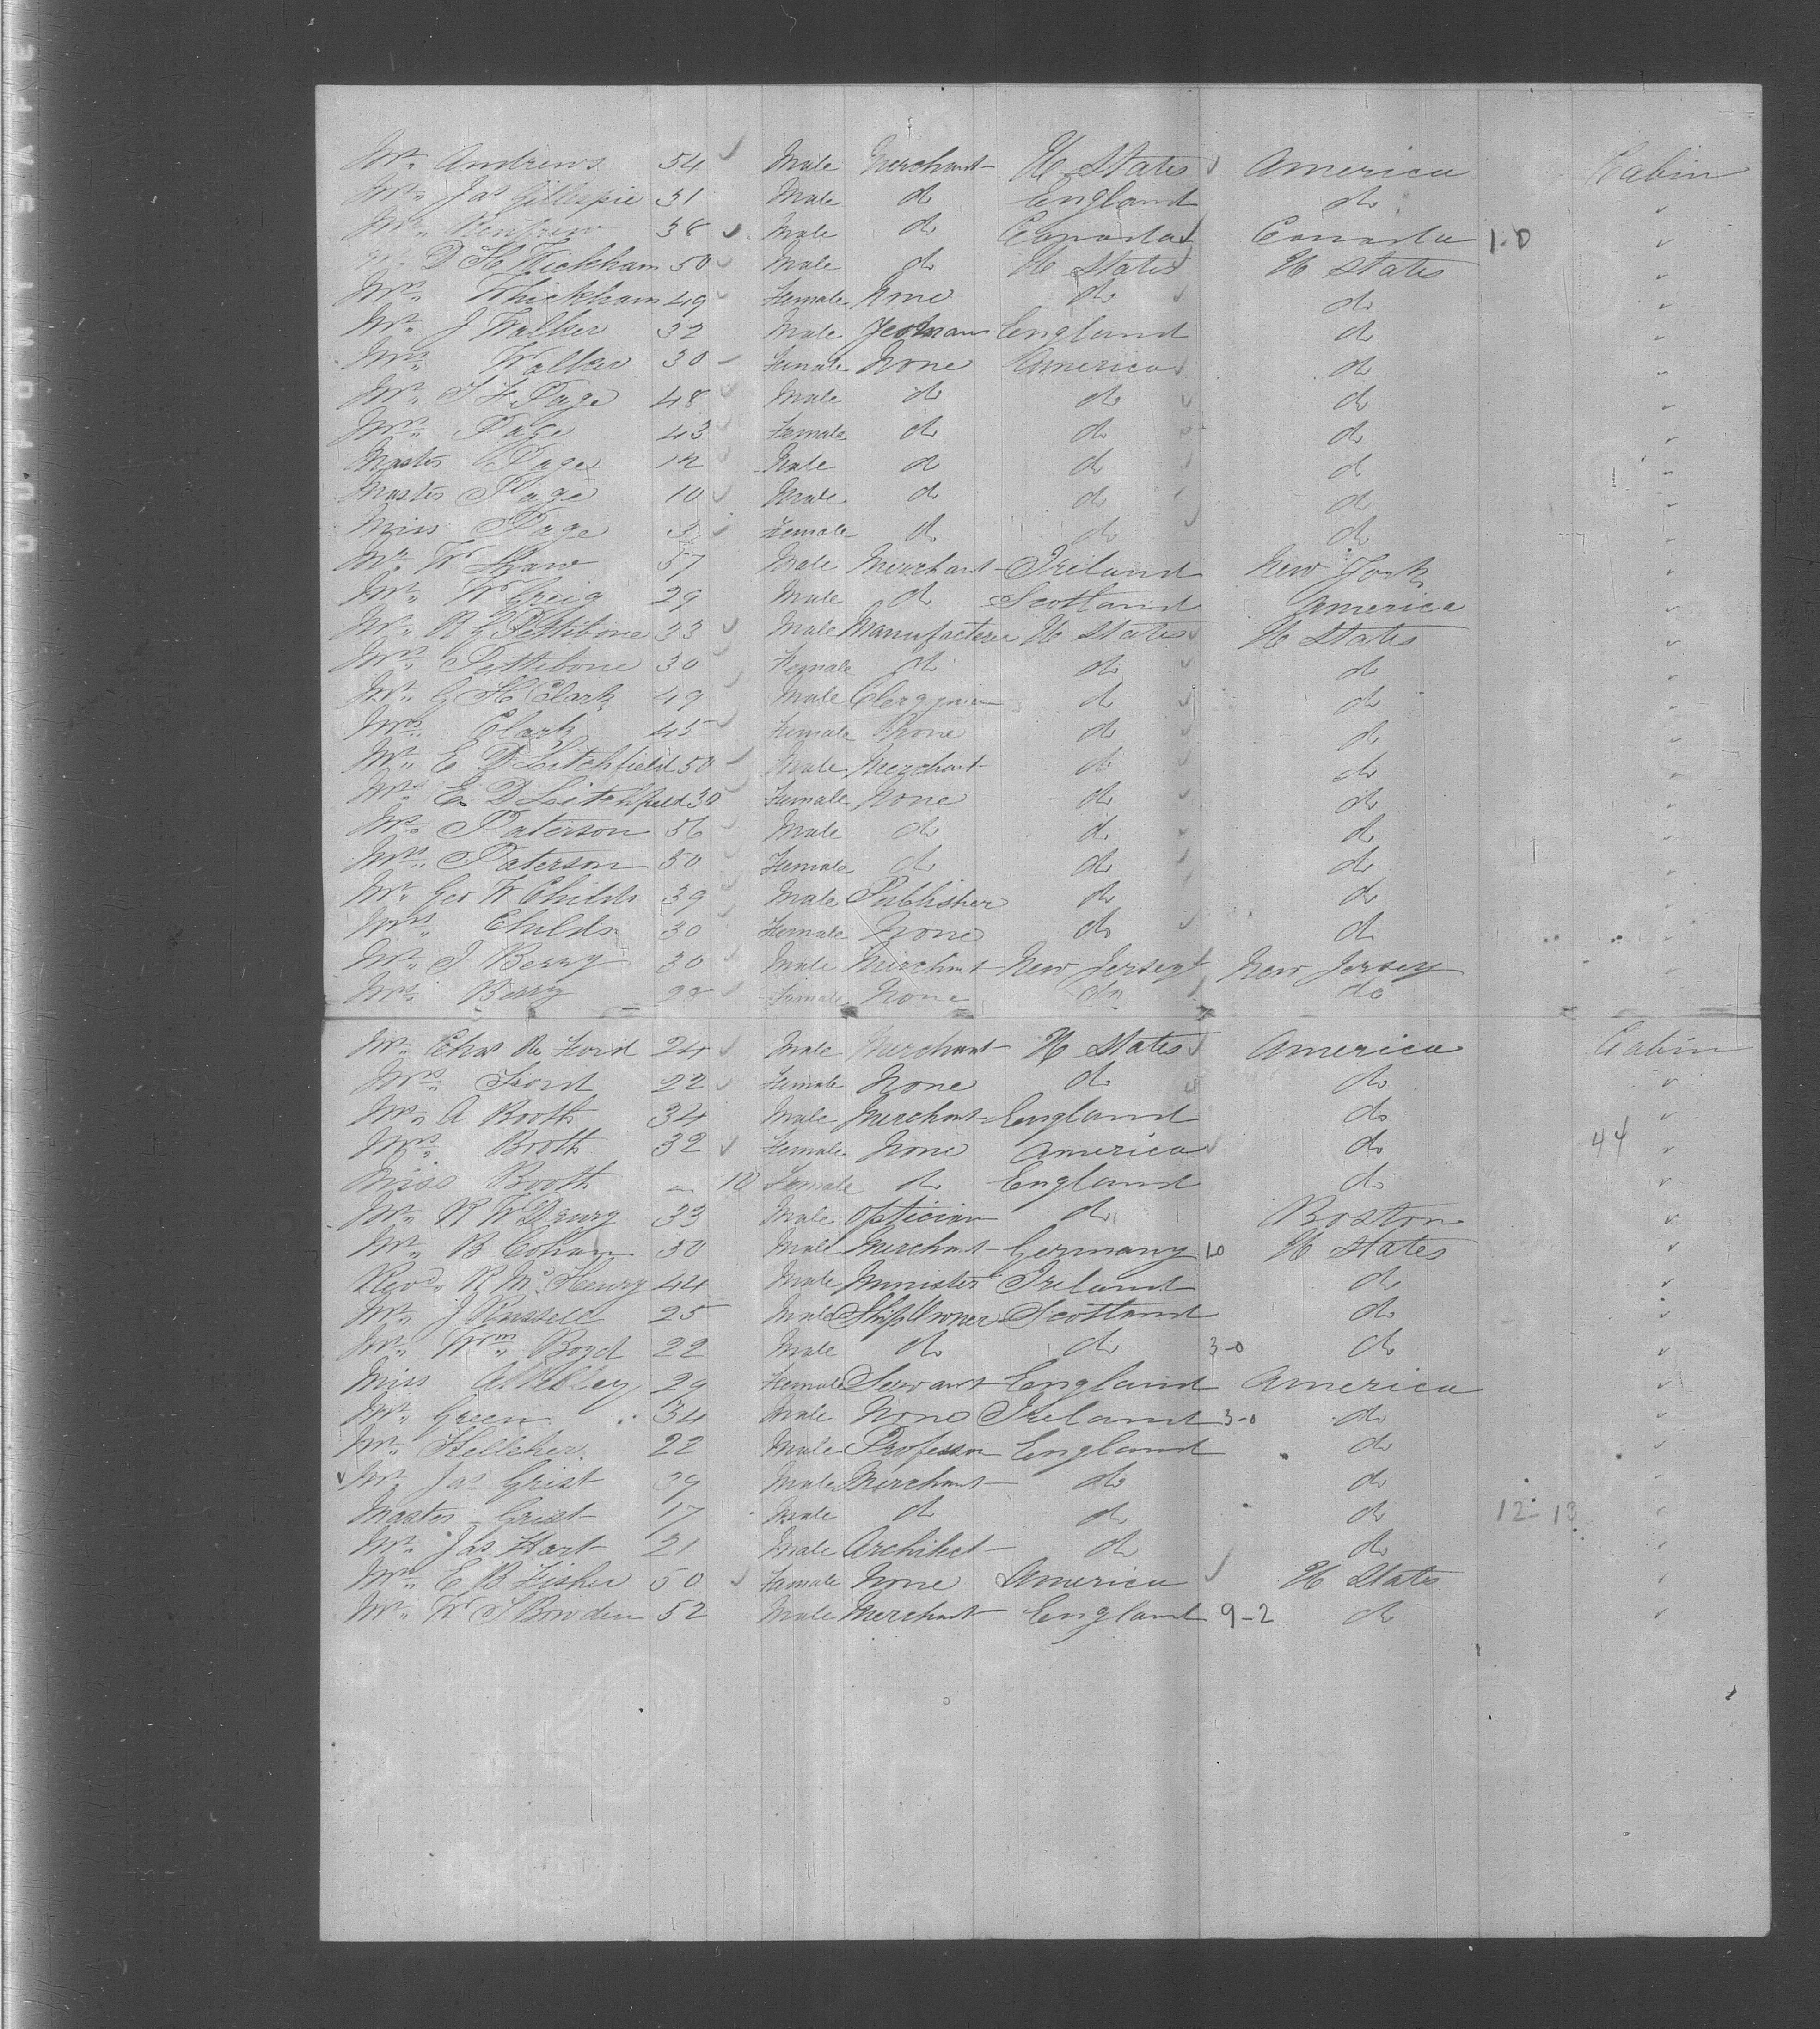 Mr. Andrews 54 Male Merchant U States America Cabin
Mr. Jas Gillespie 31 Male do England do
Mr. Renfrew 38 Male do Canada Canada 1-0
Mr. D H Wickham 50 Male do U States U States
Mrs. Whickham 49 Female None do do
Mr. J Walker 32 Male Yeoman England do
Mrs. Walker 30 Female None America do
Mr. Page 48 Male do do do
Mrs. Page 43 Female do do do
Master Page 12 Male do do do
Master Page 10 Male do do do
Miss Page 3 Female do do do
Mr. W Shaw 57 Male Merchant Ireland New York
Mr. W Greig 29 Male do Scotland America
Mr. R G Pettibone 33 Male Manufacterer U States U States
Mrs. Pettibone 30 Female do do do
Mr. G H Clark 49 Male Clergyman do do
Mrs. Clark 45 Female None do do
Mr. E D Litchfield 50 Male Merchant do do
Mrs. E D Litchfield 30 Female None do do
Mr. Paterson 56 Male do do do
Mrs. Paterson 50 Female do do do
Mr. Geo W Childs 39 Male Publisher do do
Mrs. Childs 30 Female None do do
Mr. J Berry 30 Male Merchant New Jersey New Jersey
Mrs. Berry 28 Female None do do
Mr. Chas De Ford 24 Male Merchant U States America Cabin
Mrs. Ford 22 Female None do do
Mr. A Booth 34 Male Merchant England do
Mrs. Booth 32 Female None America do 44
Miss Booth 10 Female do England do
Mr. R W Drury 33 Male Optician do Boston
Mr. B 50 Male Merchant Germany 1-0 U States
Revd. R Mc Henry 44 Male Minister Ireland do
Mr. J Russell 25 Male Ship Owner Scotland do
Mr. Wm Boyd 22 Male do do 3-0 do
Miss 29 Female Servant England America
Mr. Green 34 Male None Ireland 3-0 do
Mr. Kelleher 22 Male Professor England do
Mr. Jas Grist 39 Male Merchant do do
Master Grist 17 Male do do do 12-13
Mr. Jas Hart 21 Male Architect do do
Mrs. E B Fisher 50 Female None America U States
Mr. W S Bowden 52 Male Merchant England 9-2 do
DUPONT SAFE